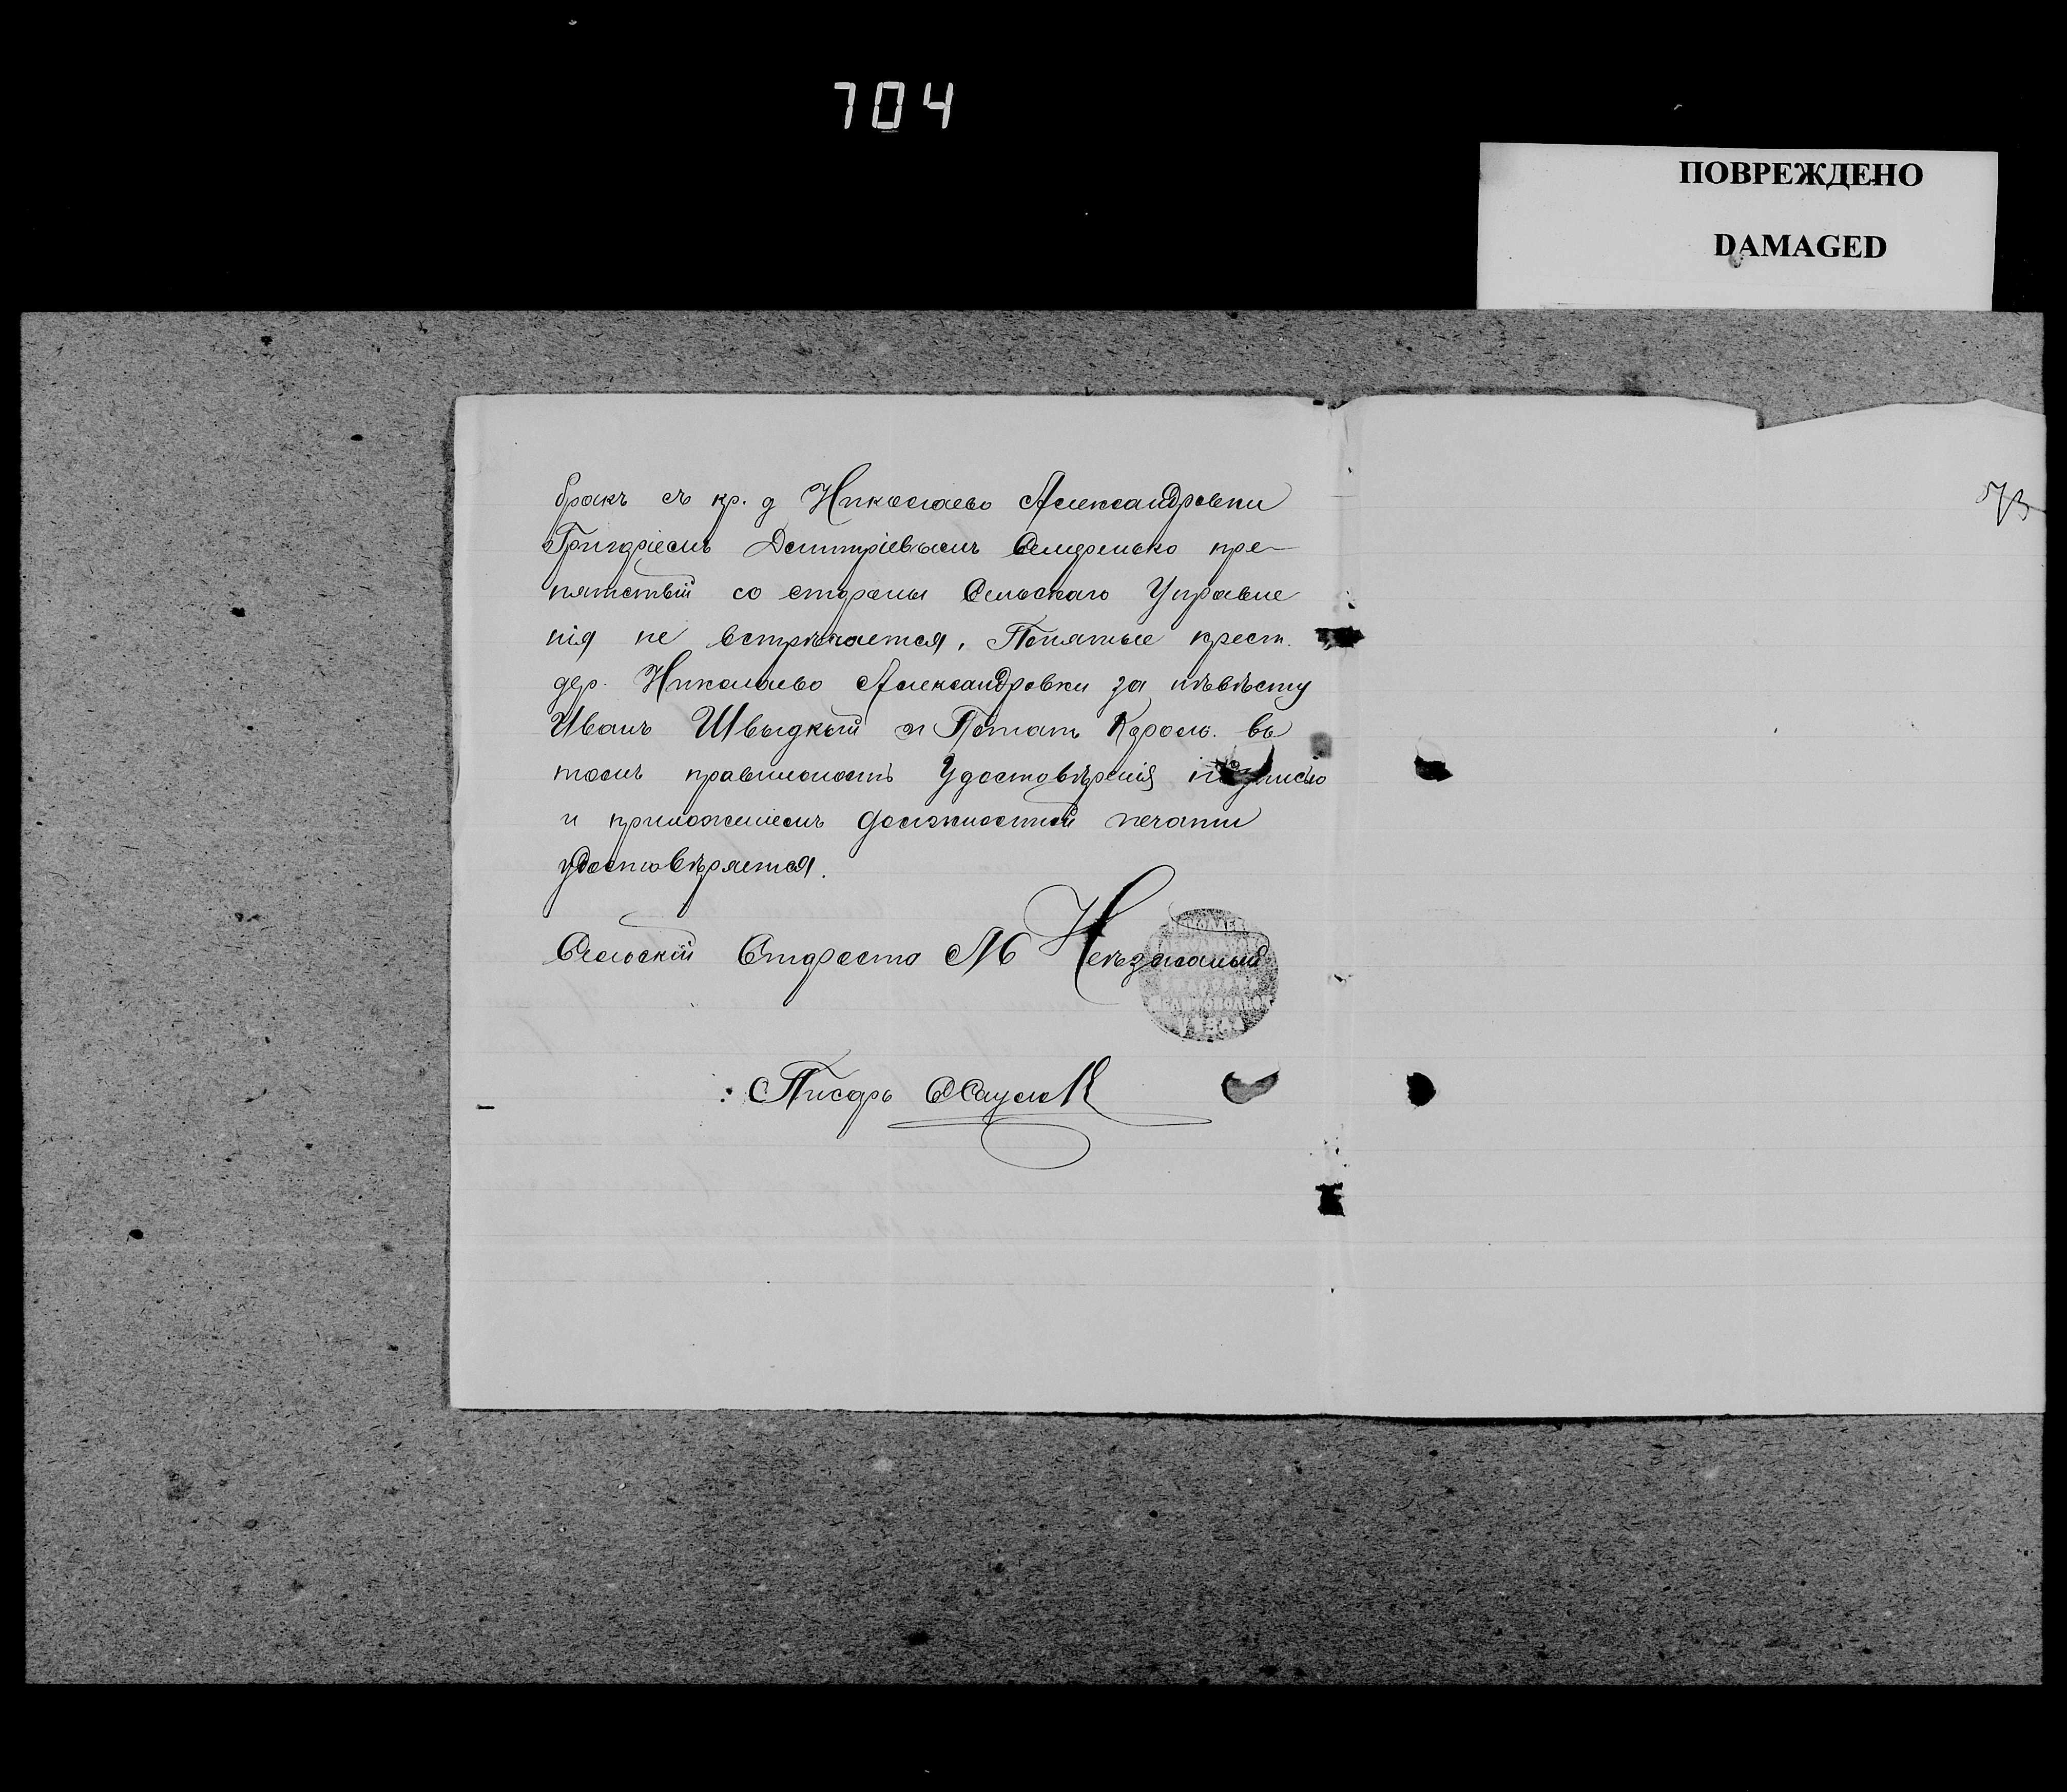 704
ПОВРЕЖДЕНО
DAMAGED
73
бракъ съ кр. д Николаево Александровки
Григоріемъ Дмитріевымъ пре-
пятствій со стороны Сельскаго Управле
нія не встрѣчается, Понятые крест.
дер. Николаево Александровки за нѣвѣсту
Иванъ Швыдкий и Потап Король. въ
томъ правильность Удостовѣренія подписью
и приложеніемъ должностной печати
удостовѣряется.
Сельскій Староста М
Писарь